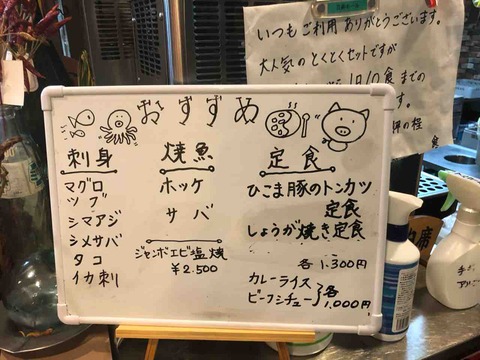 おすすめ
刺身
マグロ
ツブ
シマアジ
シメサバ
タコ
イカ刺
焼魚
ホッケ
サバ
ジャンボエビ塩焼
¥2.500
定食
ひこま豚のトンカツ
定食
しょうが焼き定食
各1.300円
カレーライス
ビーフシチュー}各
1.000円
いつもご利用ありがとうございます。
大人気のとくとくセットですが
1日10食までの
す。
席